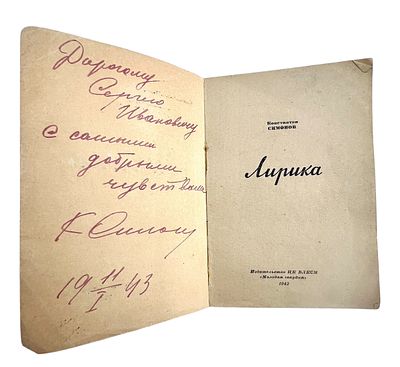 Дорогому
Сергею
Ивановичу
с самыми
добрыми
чувствами
К Симонов
19 11/I 43
Константин
СИМОНОВ
Лирика
Издательство ЦК ВЛКСМ
«Молодая гвардия»
1942